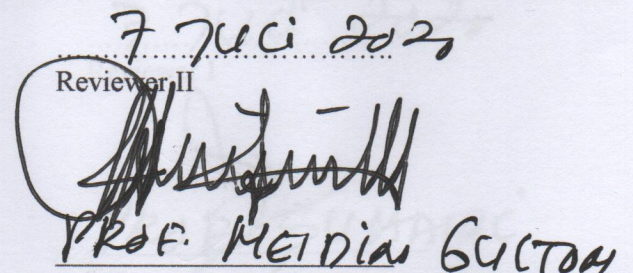 7 Juli 2020
Reviewer II
PROF. MEIDIAN GULTOM